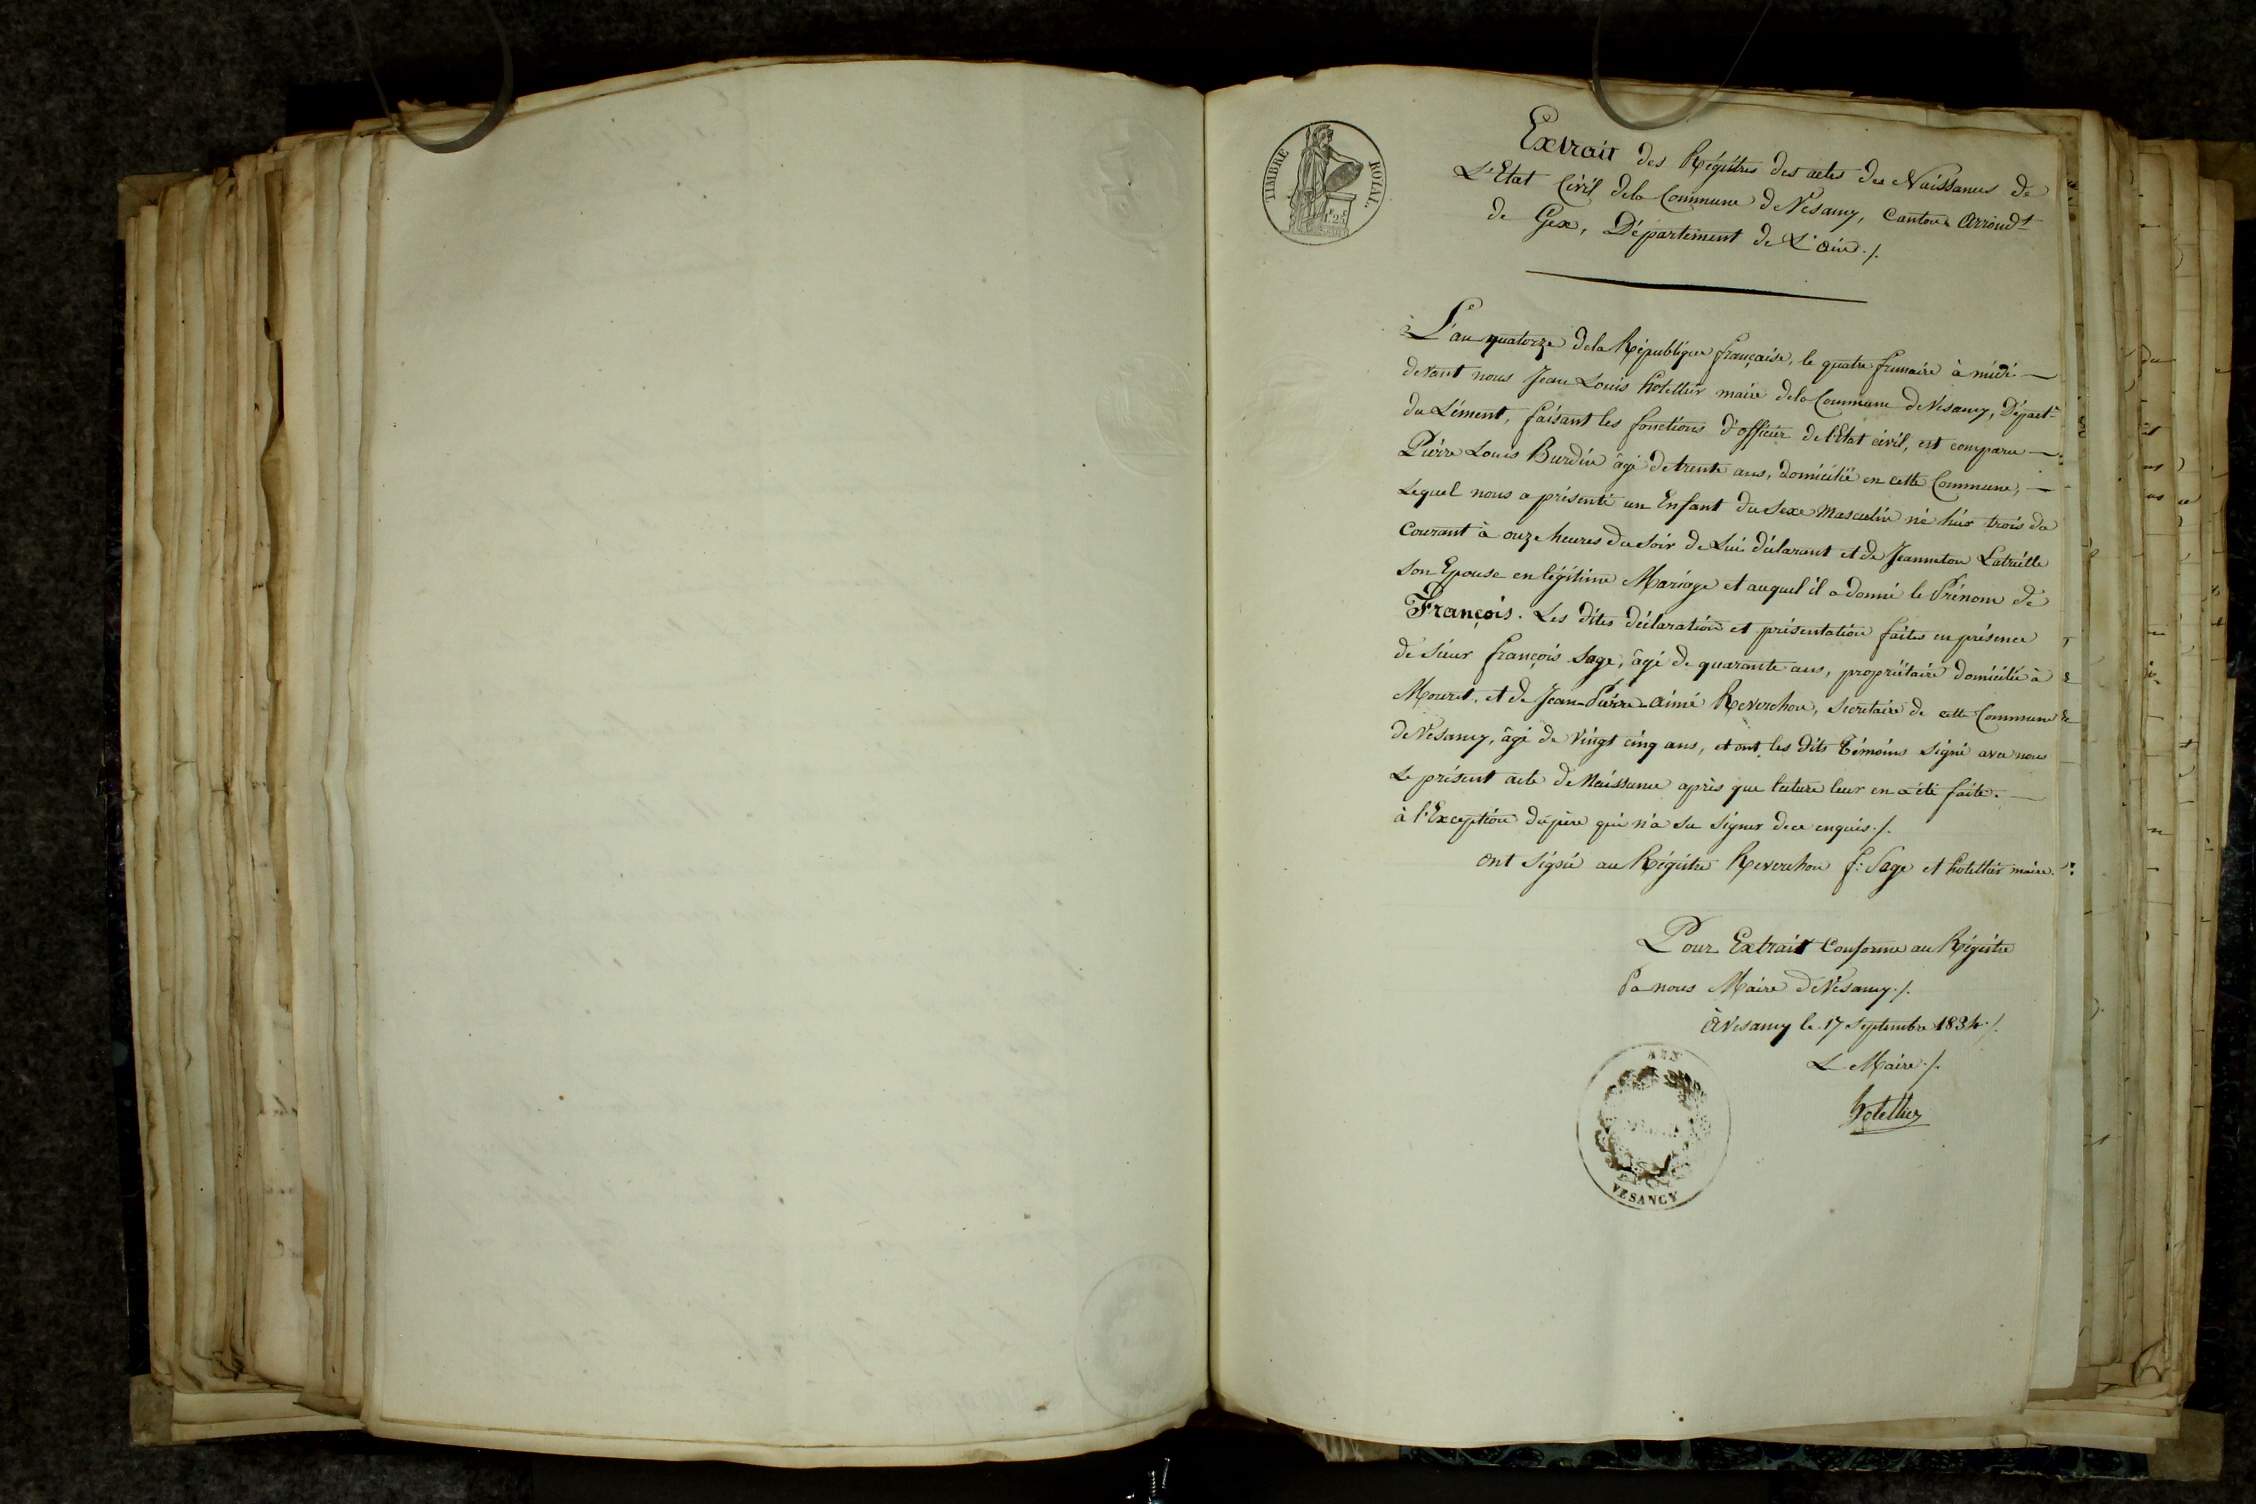 TIMBRE ROYAL
1F 25C
Extrait des Régistres des actes des Naissances de
L'Etat Civil de la Commune de Vésancy, Canton & Arrondt
de Gex, Département de L'ain ./.
L'an quatorze de la République française, le quatre frimaire à midi —
devant nous Jean Louis hotellier maire de la Commune de Vesancy, Départt
du Lément, faisant les fonctions d'officier de l'Etat civil, est comparu —
Pierre Louis Burdin âgé de trente ans, domicilié en cette Commune, —
Lequel nous a présenté un Enfant du Sexe Masculin né hier trois du
Courant à onze heures du Soir de Lui déclarant et de Jeanneton
Son Epouse en légitime Mariage et auquel il a donné le Prénom de
François. Les dites déclaration et présentation faites en présence
de Sieur françois Sage, âgé de quarante ans, propriétaire domicilié à
Mouret, et de Jean-Pierre-aimé Reverchon, Secretaire de cette Commune
de Vésancy, âgé de vingt cinq ans, et ont les dits témoins Signé avec nous
Le présent acte de Naissance après que lecture leur en a été faite. —
à l'Exception du père qui n'a su signer de ce enquis ./.
ont Signé au Régistre Reverchon f: Sage et hotellier maire.
Pour Extrait Conforme au Régistre
Pa nous Maire de Vésancy ./.
à Vesancy le 17 Septembre 1834 ./.
Le Maire ./.
hotellier
AIN
VESANCY